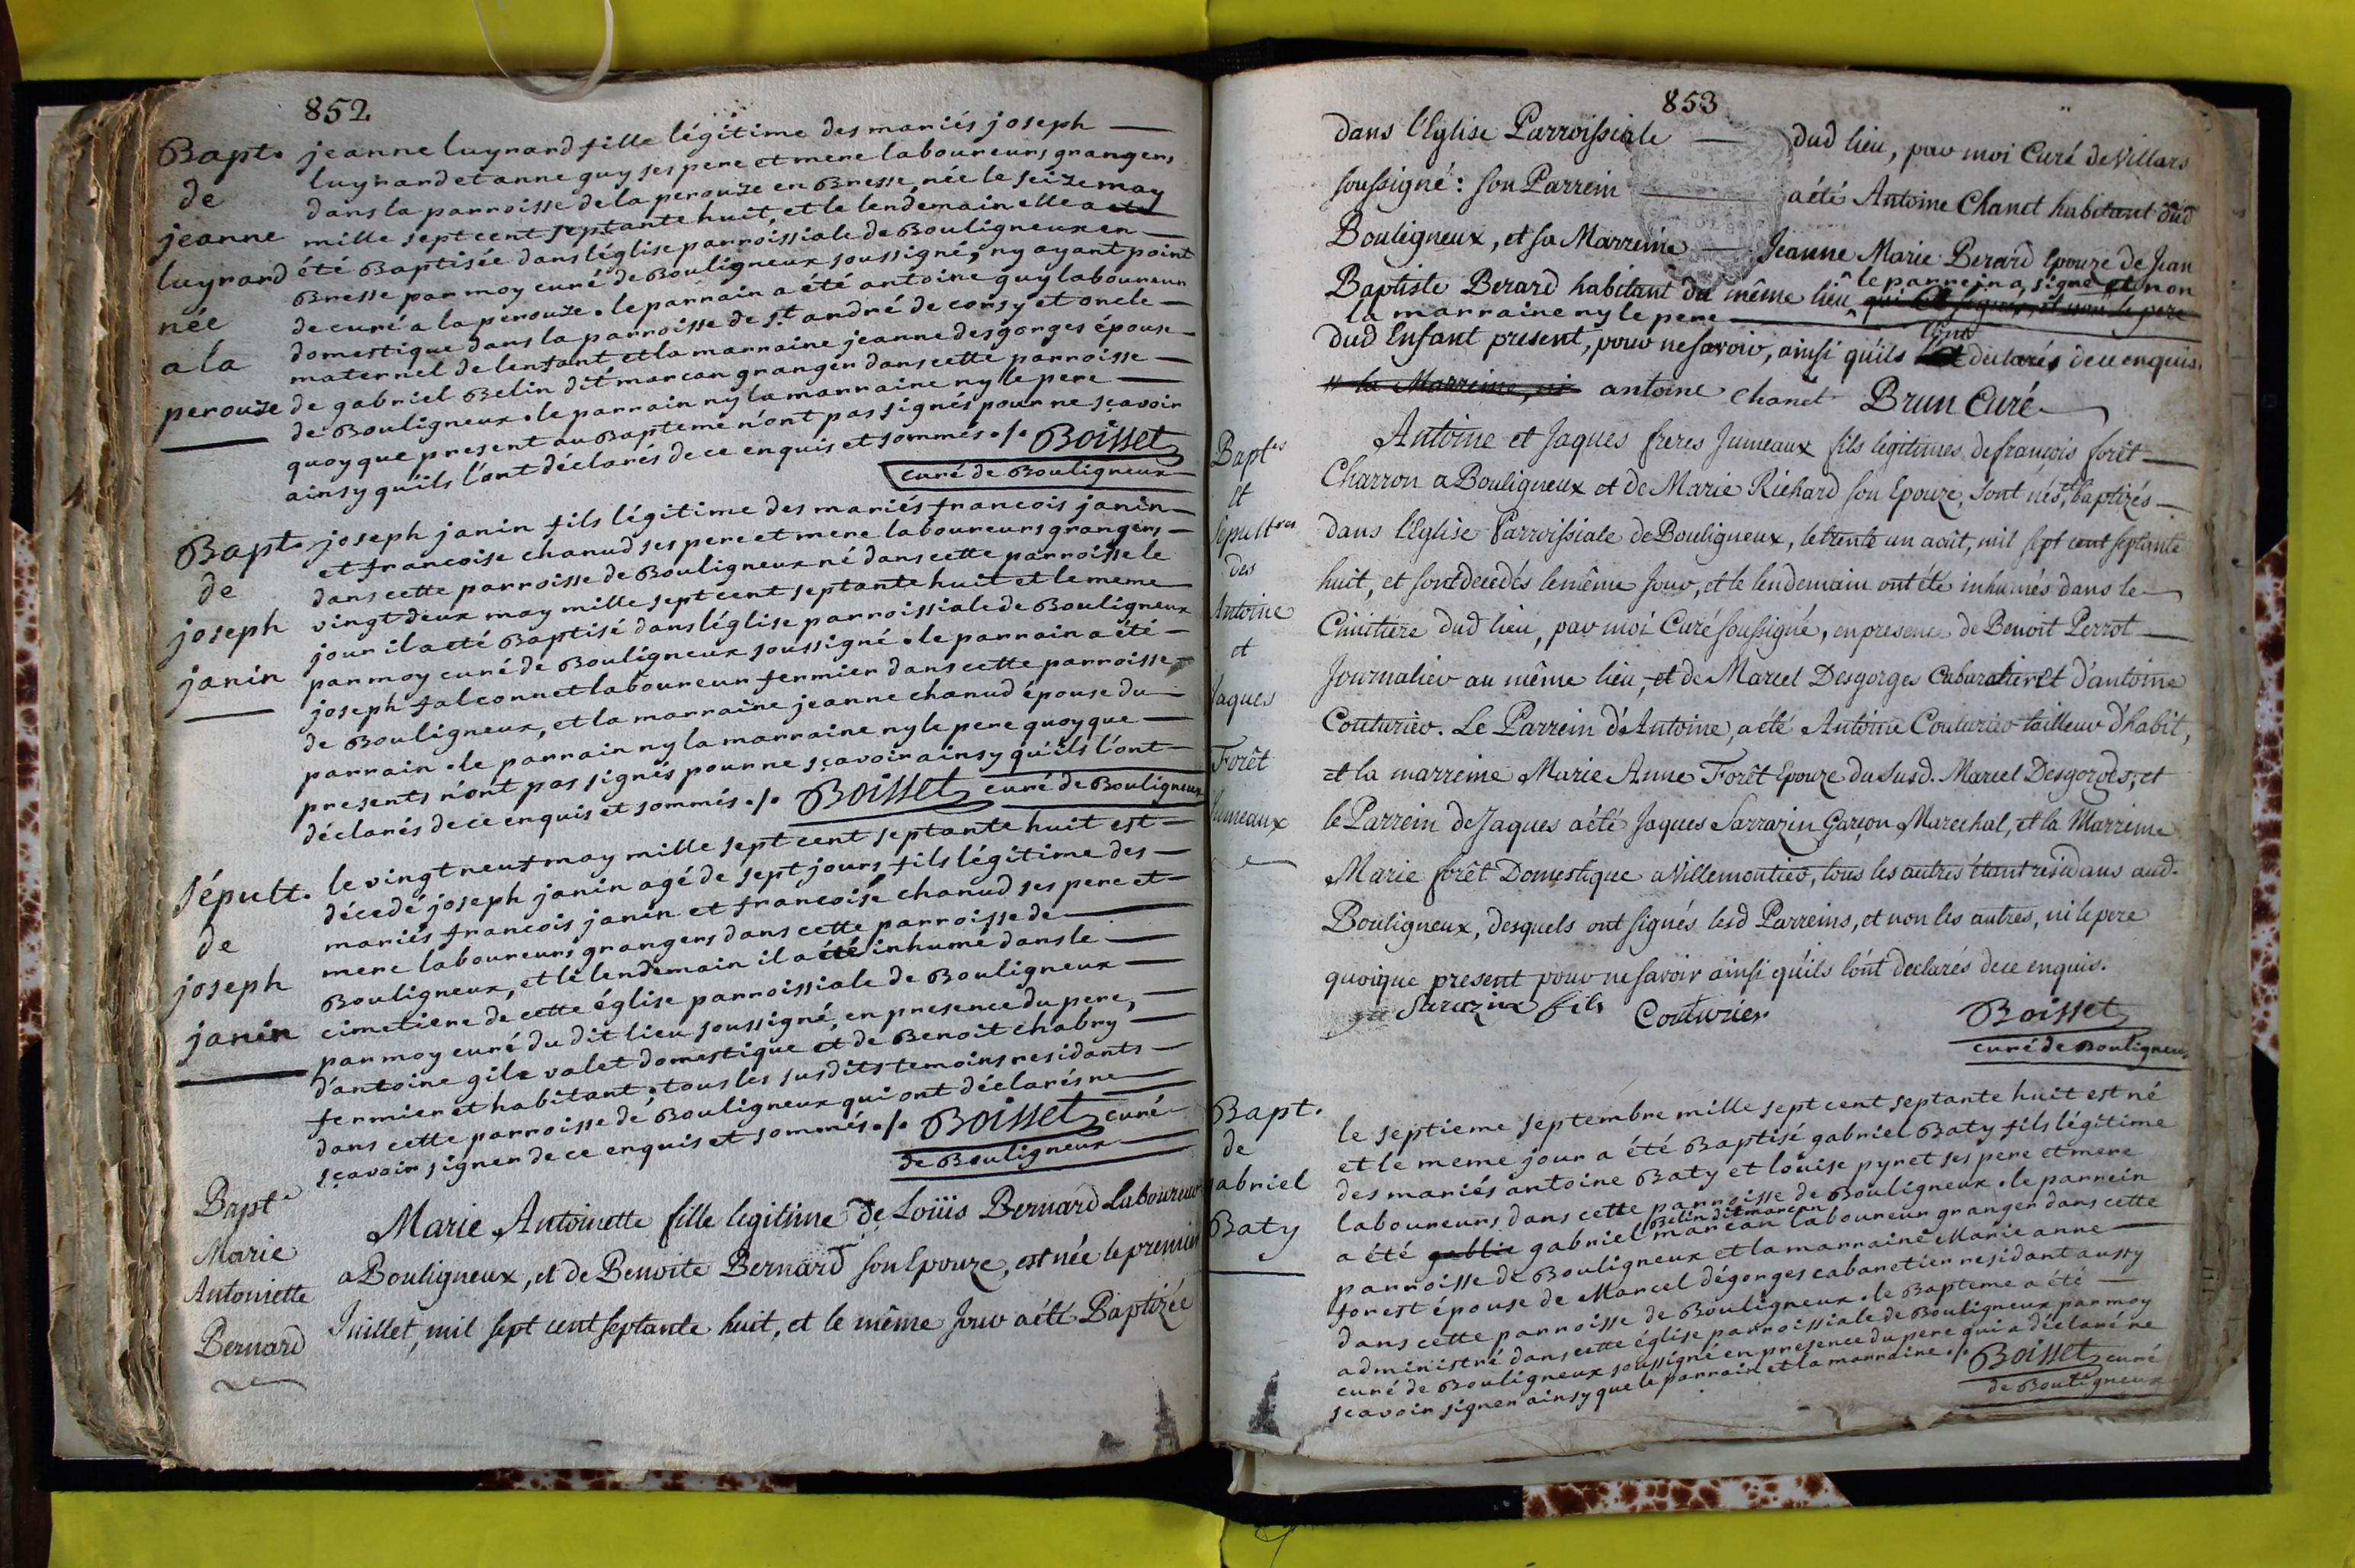 852
Bapt.
de
jeanne
luyrand
née
a la
perouze
jeanne luyrand fille légitime des mariés joseph
luyrand et anne guy ses pere et mere laboureurs grangers
dans la parroisse de la perouze en Bresse, née le seize may
mille sept cent septante huit, et le lendemain elle a
été Baptisée dans léglise parroissiale de Bouligneux en
Bresse par moy curé de Bouligneux soussigné, ny ayant point
de curé a la perouze. le parrain a été antoine guy laboureur
domestique dans la parroisse de st. andré de corsy et oncle
maternel de lenfant et la marraine jeanne desgorges épouse
de gabriel Belin dit marcan granger dans cette parroisse
de Bouligneux. le parrain ny la marraine ny le pere
quoyque present au Bapteme n'ont pas signés pour ne sçavoir
ainsy qu'ils l'ont déclarés de ce enquis et sommés ./. Boisset
curé de Bouligneux
Bapt.
de
joseph
janin
joseph janin fils légitime des mariés francois janin
et francoise chanud ses pere et mere laboureurs grangers
dans cette parroisse de Bouligneux né dans cette parroisse le
vingt deux may mille sept cent septante huit et le meme
jour il a eté Baptisé dans léglise parroissiale de Bouligneux
par moy curé de Bouligneux soussigné. le parrain a été
joseph falconnet laboureur fermier dans cette parroisse
de Bouligneux, et la marraine jeanne chanud épouse du
parrain. le parrain ny la marraine ny le pere quoyque
presents n'ont pas signés pour ne sçavoir ainsy qu'ils l'ont
déclarés de ce enquis et sommés ./. Boisset curé de Bouligneux
Sépult.
de
joseph
janin
le vingt neuf may mille sept cent septante huit est
décedé joseph janin agé de sept jours fils légitime des
mariés francois janin et francoise chanud ses pere et
mere laboureurs grangers dans cette parroisse de
Bouligneux, et le lendemain il a été inhumé dans le
cimetiere de cette église parroissiale de Bouligneux
par moy curé du dit lieu soussigné, en presence du pere,
d'antoine gile valet domestique et de Benoit chabry
fermier et habitant; tous les susdits temoins residants
dans cette parroisse de Bouligneux qui ont déclarés ne
sçavoir signer de ce enquis et sommés ./. Boisset curé
de Bouligneux
Bapt.
Marie
Antoinette
Bernard
Marie Antoinette fille legitime de Loüis Bernard Laboureur
a Bouligneux, et de Benoite Bernard son Epouze, est née le premier
Juillet, mil sept cent septante huit, et le même Jour a été Baptizée
853
dans l'Eglise Parroissiale dud lieu, par moi Curé de Villars
soussigné: son Parrein a été Antoine Chanet habitant dud
Bouligneux, et sa Marreine Jeanne Marie Berard Epouze de Jean
Baptiste Berard habitant du même lieu le parrein a signé et non
la marraine ny le pere
dud Enfant present, pour ne savoir, ainsi qu'ils l'ont declarés de ce enquis.
la Marreine, ni antoine chanet Brun Curé
Bapt.es
et
sepultres
des
Antoine
et
Jaques
Forêt
Jumeaux
Antoine et Jaques freres Jumeaux fils legitimes de françois forêt
Charron a Bouligneux et de Marie Richard son Epouze, sont nés, et baptizés
dans l'Eglise Parroissiale de Bouligneux, le trente un août, mil sept cent septante
huit, et sont decedés le même Jour, et le lendemain ont été inhumés dans le
Cimitiere dud lieu, par moi Curé soussigné, en presence de Benoit Perrot
Journalier au même lieu, et de Marcel Desgorges Cabaratier et d'antoine
Couturier. Le Parrein d'Antoine, a été Antoine Couturier tailleur d'habit,
et la marreine Marie Anne Forêt Epouze du susd. Marcel Desgorges, et
le Parrein de Jaques a été Jaques Sarrazin Garçon Marechal, et la Marreine
Marie forêt Domestique a Villemoutier, tous les autres étant residans aud.
Bouligneux, desquels ont signés lesd Parreins, et non les autres, ni le pere
quoique present pour ne savoir ainsi qu'ils l'ont declarés de ce enquis.
Sarazin fils Couturier Boisset
curé de Bouligneux
Bapt.
de
gabriel
Baty
le septieme septembre mille sept cent septante huit est né
et le meme jour a été Baptisé gabriel Baty fils légitime
des mariés antoine Baty et loüise pyret ses pere et mere
laboureurs dans cette parroisse de Bouligneux. le parrein
Belin dit marcan
a été gabriel marcan laboureur granger dans cette
parroisse de Bouligneux et la marraine Marie anne
forest épouse de Marcel dégorges cabaretier residant aussy
dans cette parroisse de Bouligneux. le Bapteme a été
administré dans cette église parroissiale de Bouligneux par moy
curé de Bouligneux soussigné en presence du pere qui a déclaré ne
sçavoir signer ainsy que le parrain et la marraine ./. Boisset curé
de Bouligneux